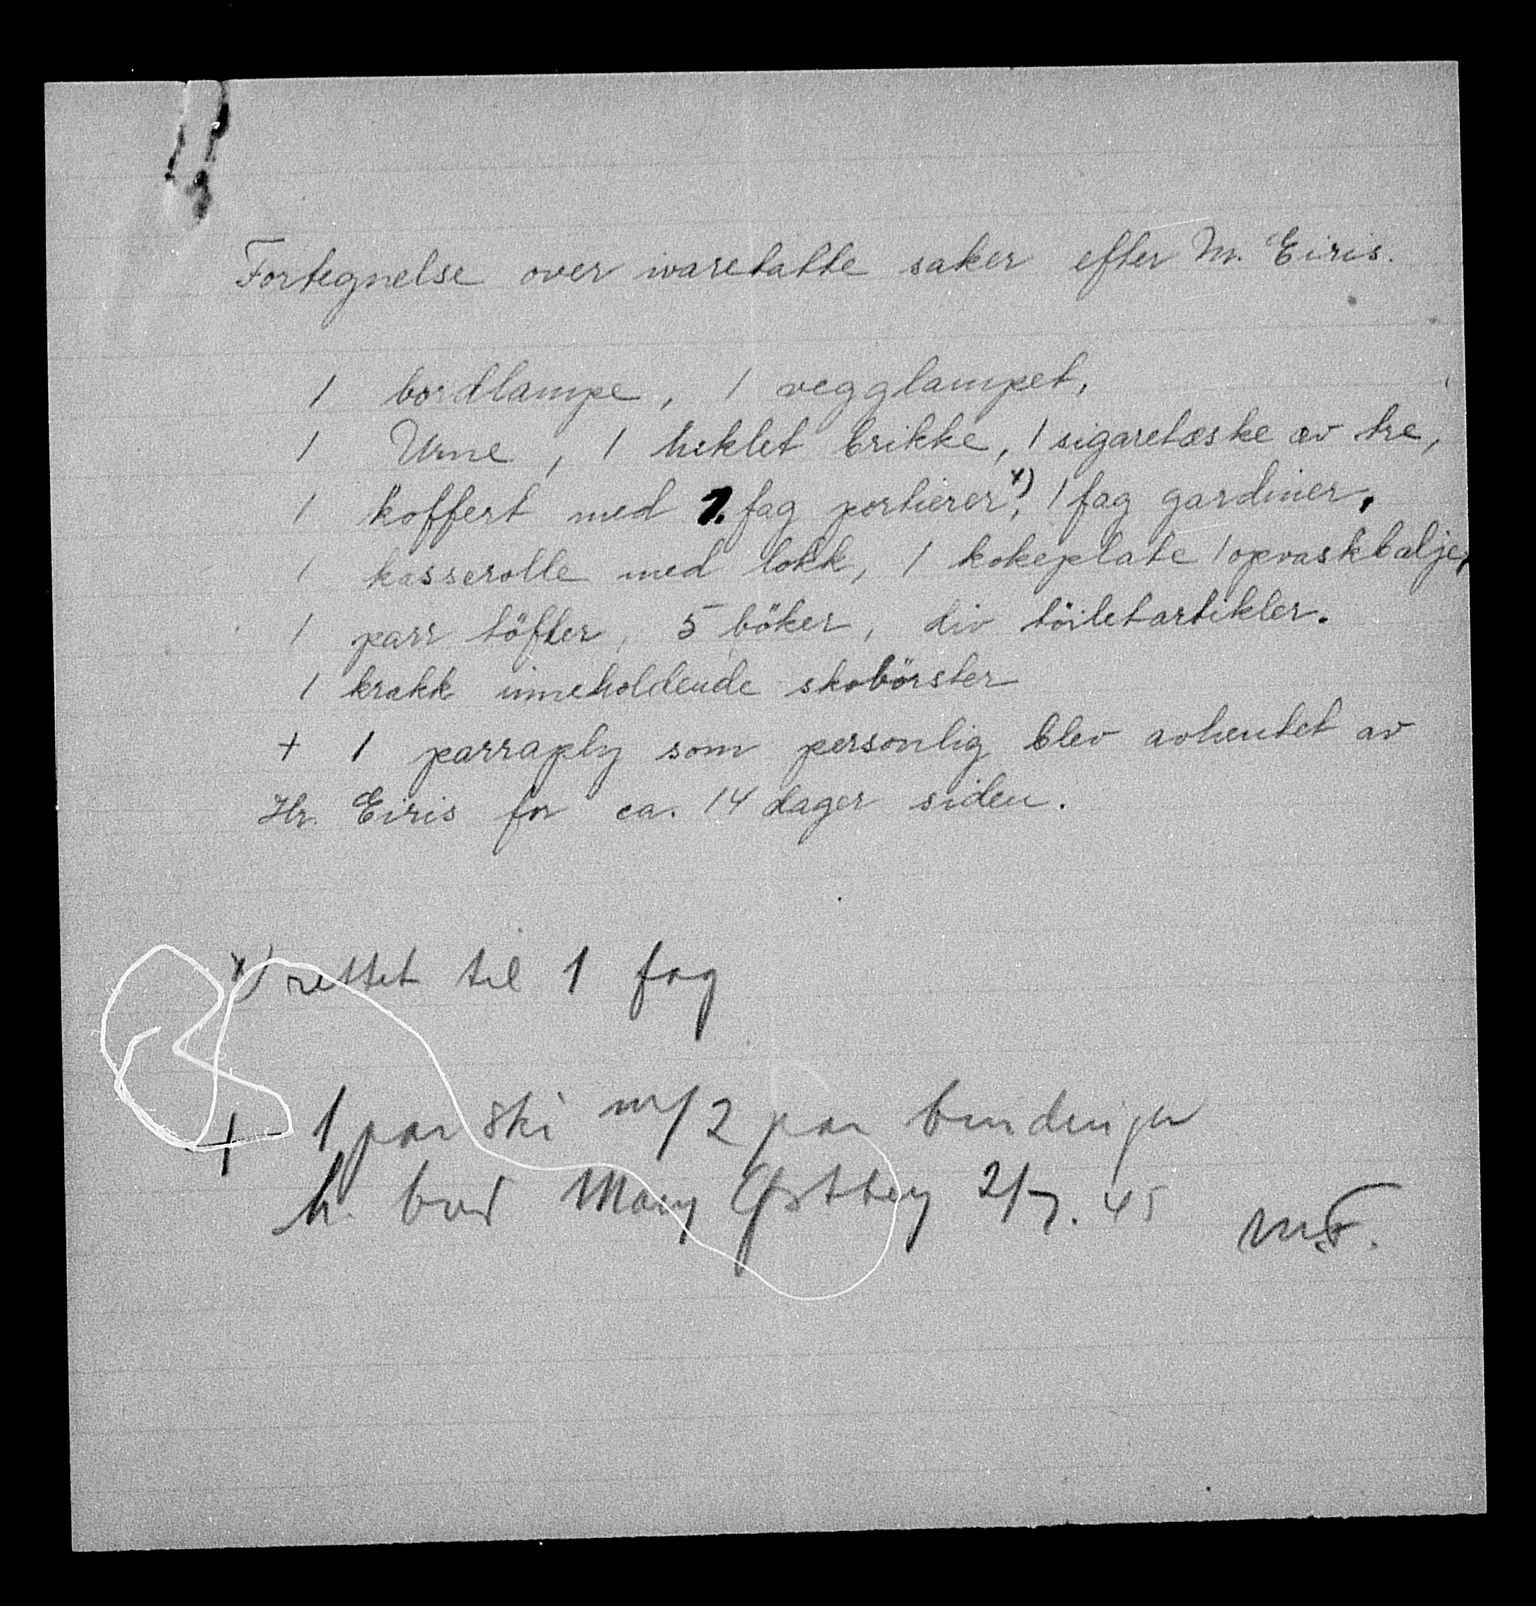 Fortegnelse over ivaretatte saker efter M. Eiris.
1 bordlampe, 1 vegglampet,
1 Urne, 1 heklet brikke, 1 sigaretæske av tre,
1 koffert med 1. fag portierer x), 1 fag gardiner,
1 kasserolle med lokk, 1 kokeplate 1 opvaskbalje,
1 parr töfler, 5 böker, div töiletartikler.
1 krakk inneholdende skobörster
+ 1 parraply som personlig blev avhentet av
Hr. Eiris for ca. 14 dager siden.
x) rettet til 1 fag
+ 1 par ski m/2 par bindinger
h. bos Mary Østbey 2/7. 45